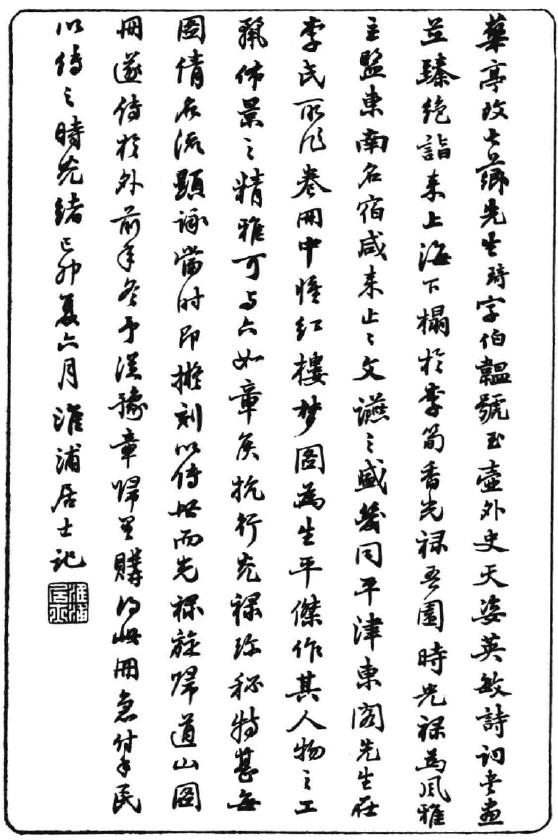 華亭改七薌先生琦字伯韞號玉壺外史天姿英敏詩詞書畫
並臻絶詣来上海下榻於李筍香光禄吾園時光禄為風雅
主盟東南名宿咸来止止文讌之盛幾同平津東閣先生在
李氏所作卷冊中惟紅樓夢圖為生平傑作其人物之工
麗佈景之精雅可与六如章矦抗行光禄珍秘特甚每
圖倩名流題詠當时即擬刻以傳世而光禄旋歸道山圖
冊遂傳於外前年冬予從豫章歸里購得此冊急付手民
以傳之時光緒己卯夏六月淮浦居士記
淮浦居士